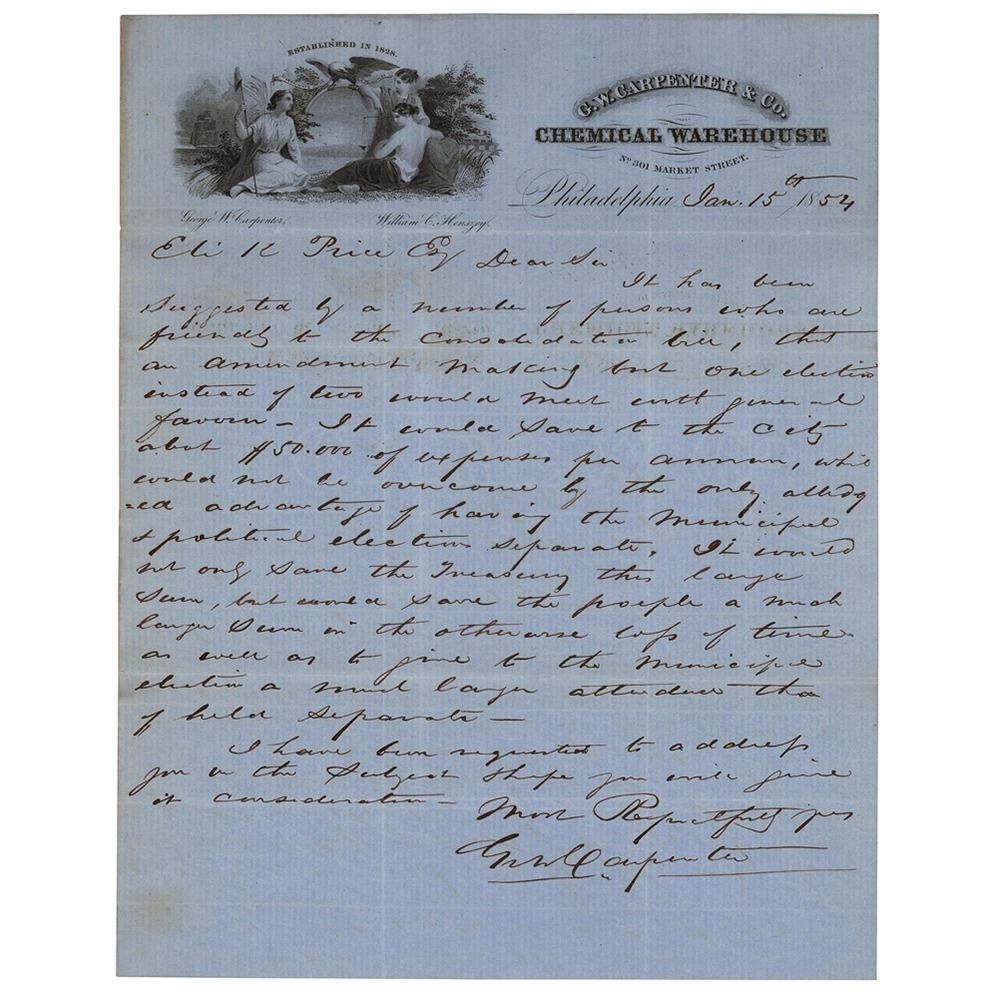 ESTABLISHED IN 1828.
G. W. CARPENTER & Co.
CHEMICAL WAREHOUSE
No 301 MARKET STREET.
Philadelphia Jan. 15th 1854
George W. Carpenter, William C. Henszey.
Eli K Price Esq Dear Sir
It has been
suggested by a number of persons who are
friendly to the Consolidation bill, that
an amendment making but one election
instead of two would meet with general
favour – It would save to the City
about $50.000 of expenses per annum, which
would not be overcome by the only alledg
=ed advantage of having the Municipal
& political elections separate. It would
not only save the Treasury this large
sum, but would save the people a much
larger sum in the otherwise loss of time
as well as to give to the Municipal
election a much larger attendance than
if held separate –
I have been requested to address
you on the subject & hope you will give
it consideration –
Most Respectfully yrs
Geo W Carpenter